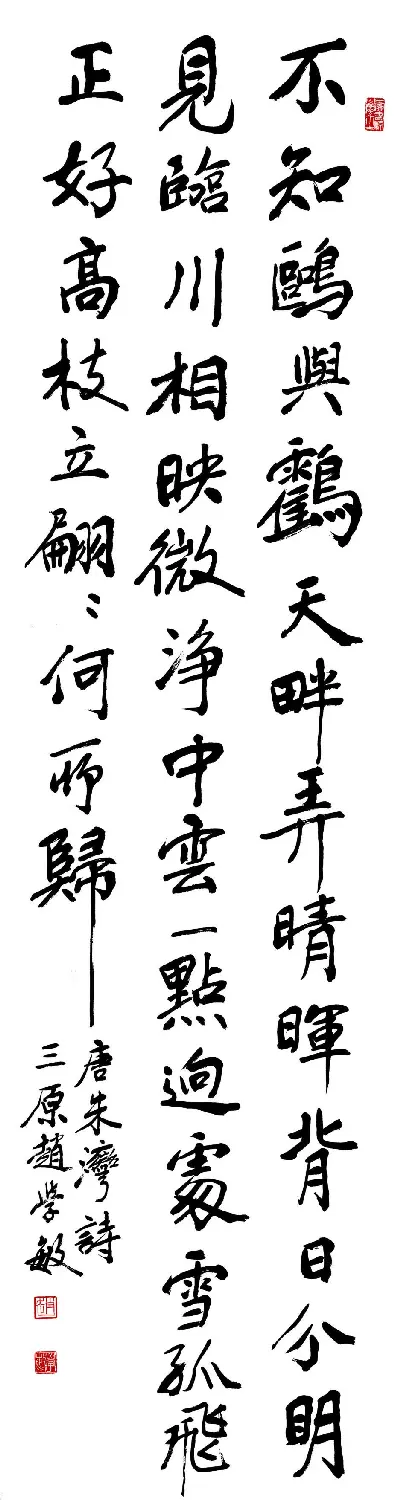 不知鷗與鶴天畔弄晴暉背日分明
見臨川相映微淨中雲一點迥處雪孤飛
正好高枝立翩〻何所歸
唐朱灣詩
三原趙學敏